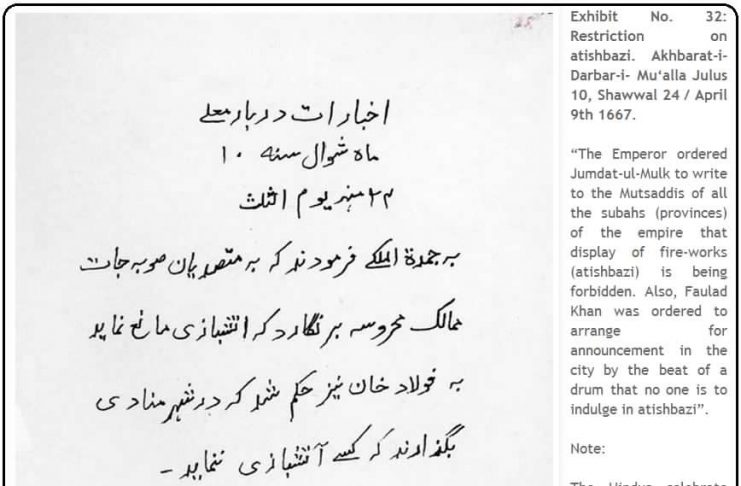 اخبارات دربار معلے
ماه شوال سنه ۱۰
۲۴ شهر یوم الثلث
به جمدة الملکے فرمودند که به متصدیان صوبه جات
ممالک محروسه برنگارد که آتشبازی مانع نماید
به فولاد خان نیز حکم شد که در شهر منادی
بگذارند که کسے آتشبازی ننماید -
Exhibit No. 32:
Restriction on
atishbazi. Akhbarat-i-
Darbar-i- Mu‘alla Julus
10, Shawwal 24 / April
9th 1667.
“The Emperor ordered
Jumdat-ul-Mulk to write
to the Mutsaddis of all
the subahs (provinces)
of the empire that
display of fire-works
(atishbazi) is being
forbidden. Also, Faulad
Khan was ordered to
arrange for
announcement in the
city by the beat of a
drum that no one is to
indulge in atishbazi”.
Note:
The Hindus celebrate